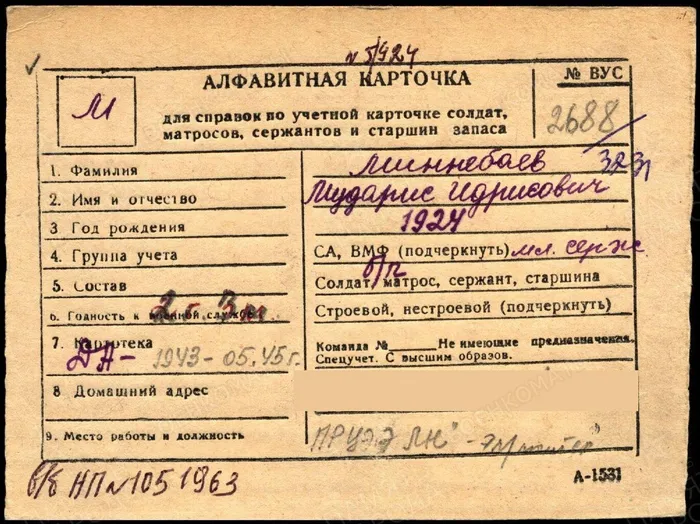 N 5/924
АЛФАВИТНАЯ КАРТОЧКА
№ ВУС
М
для справок по учетной карточке солдат,
матросов, сержантов и старшин запаса
2688
1. Фамилия Миннебаев
2. Имя и отчество Мударис Идрисович
3. Год рождения 1924
4. Группа учета СА, ВМФ (подчеркнуть) мл. серж
5. Состав Солдат, матрос, сержант, старшина
б/п
6. Годность к военной службе Строевой, нестроевой (подчеркнуть)
7. Картотека Команда № Не имеющие предназначения.
Спецучет. С высшим образов.
ДА- 1943-05.45г.
8 Домашний адрес
9. Место работы и должность
в/б НП №105 1963
А-1531